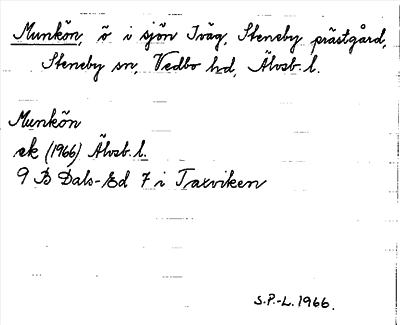 Munkön, ö i sjön Iväg, Steneby prästgård,
Steneby sn, Vedbo hd, Älvsb. l.
Munkön
ek (1966) Älvsb. l.
9 B Dals-Ed 7 i Taxviken
S.P.-L. 1966.